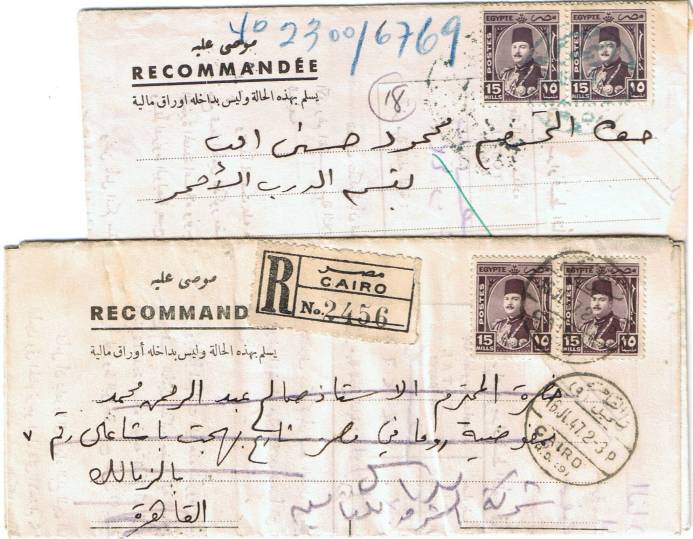 موصى عليه
40 2300/6769
RECOMMANDÉE
يسلم بهذه الحالة وليس بداخله أوراق مالية
18
EGYPTE مصر
POSTES
15 MILLS ١٥
EGYPTE مصر
POSTES
15 MILLS ١٥
محمود حسين
بقسم الدرب الأحمر
موصى عليه
RECOMMAND
يسلم بهذه الحالة وليس بداخله أوراق مالية
R
مصر
CAIRO
No. 2456
EGYPTE مصر
POSTES
15 MILLS ١٥
EGYPTE مصر
POSTES
15 MILLS ١٥
حضرة المحترم الاستاذ صالح عبد الرحمن محمد
مفوضية روما في مصر شارع بهجت باشا على رقم ٧
بالزمالك
القاهرة
16 JL 47 2-3 P
CAIRO
شركة الشرق للتأمين